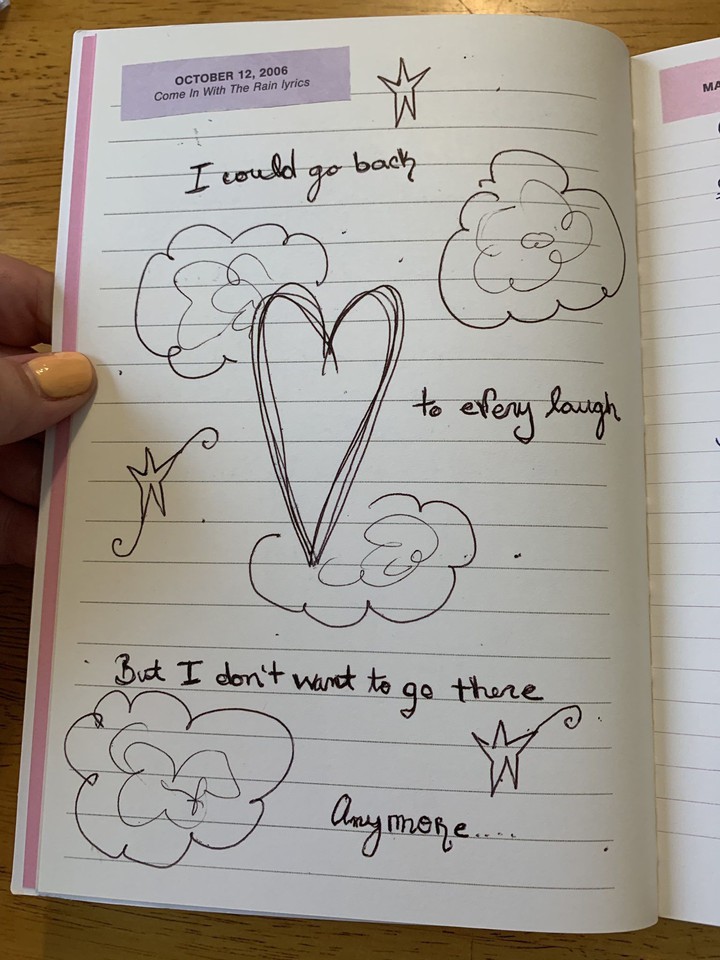 OCTOBER 12, 2006
Come In With The Rain lyrics
I could go back
to every laugh
But I don't want to go there
Anymore....
MA